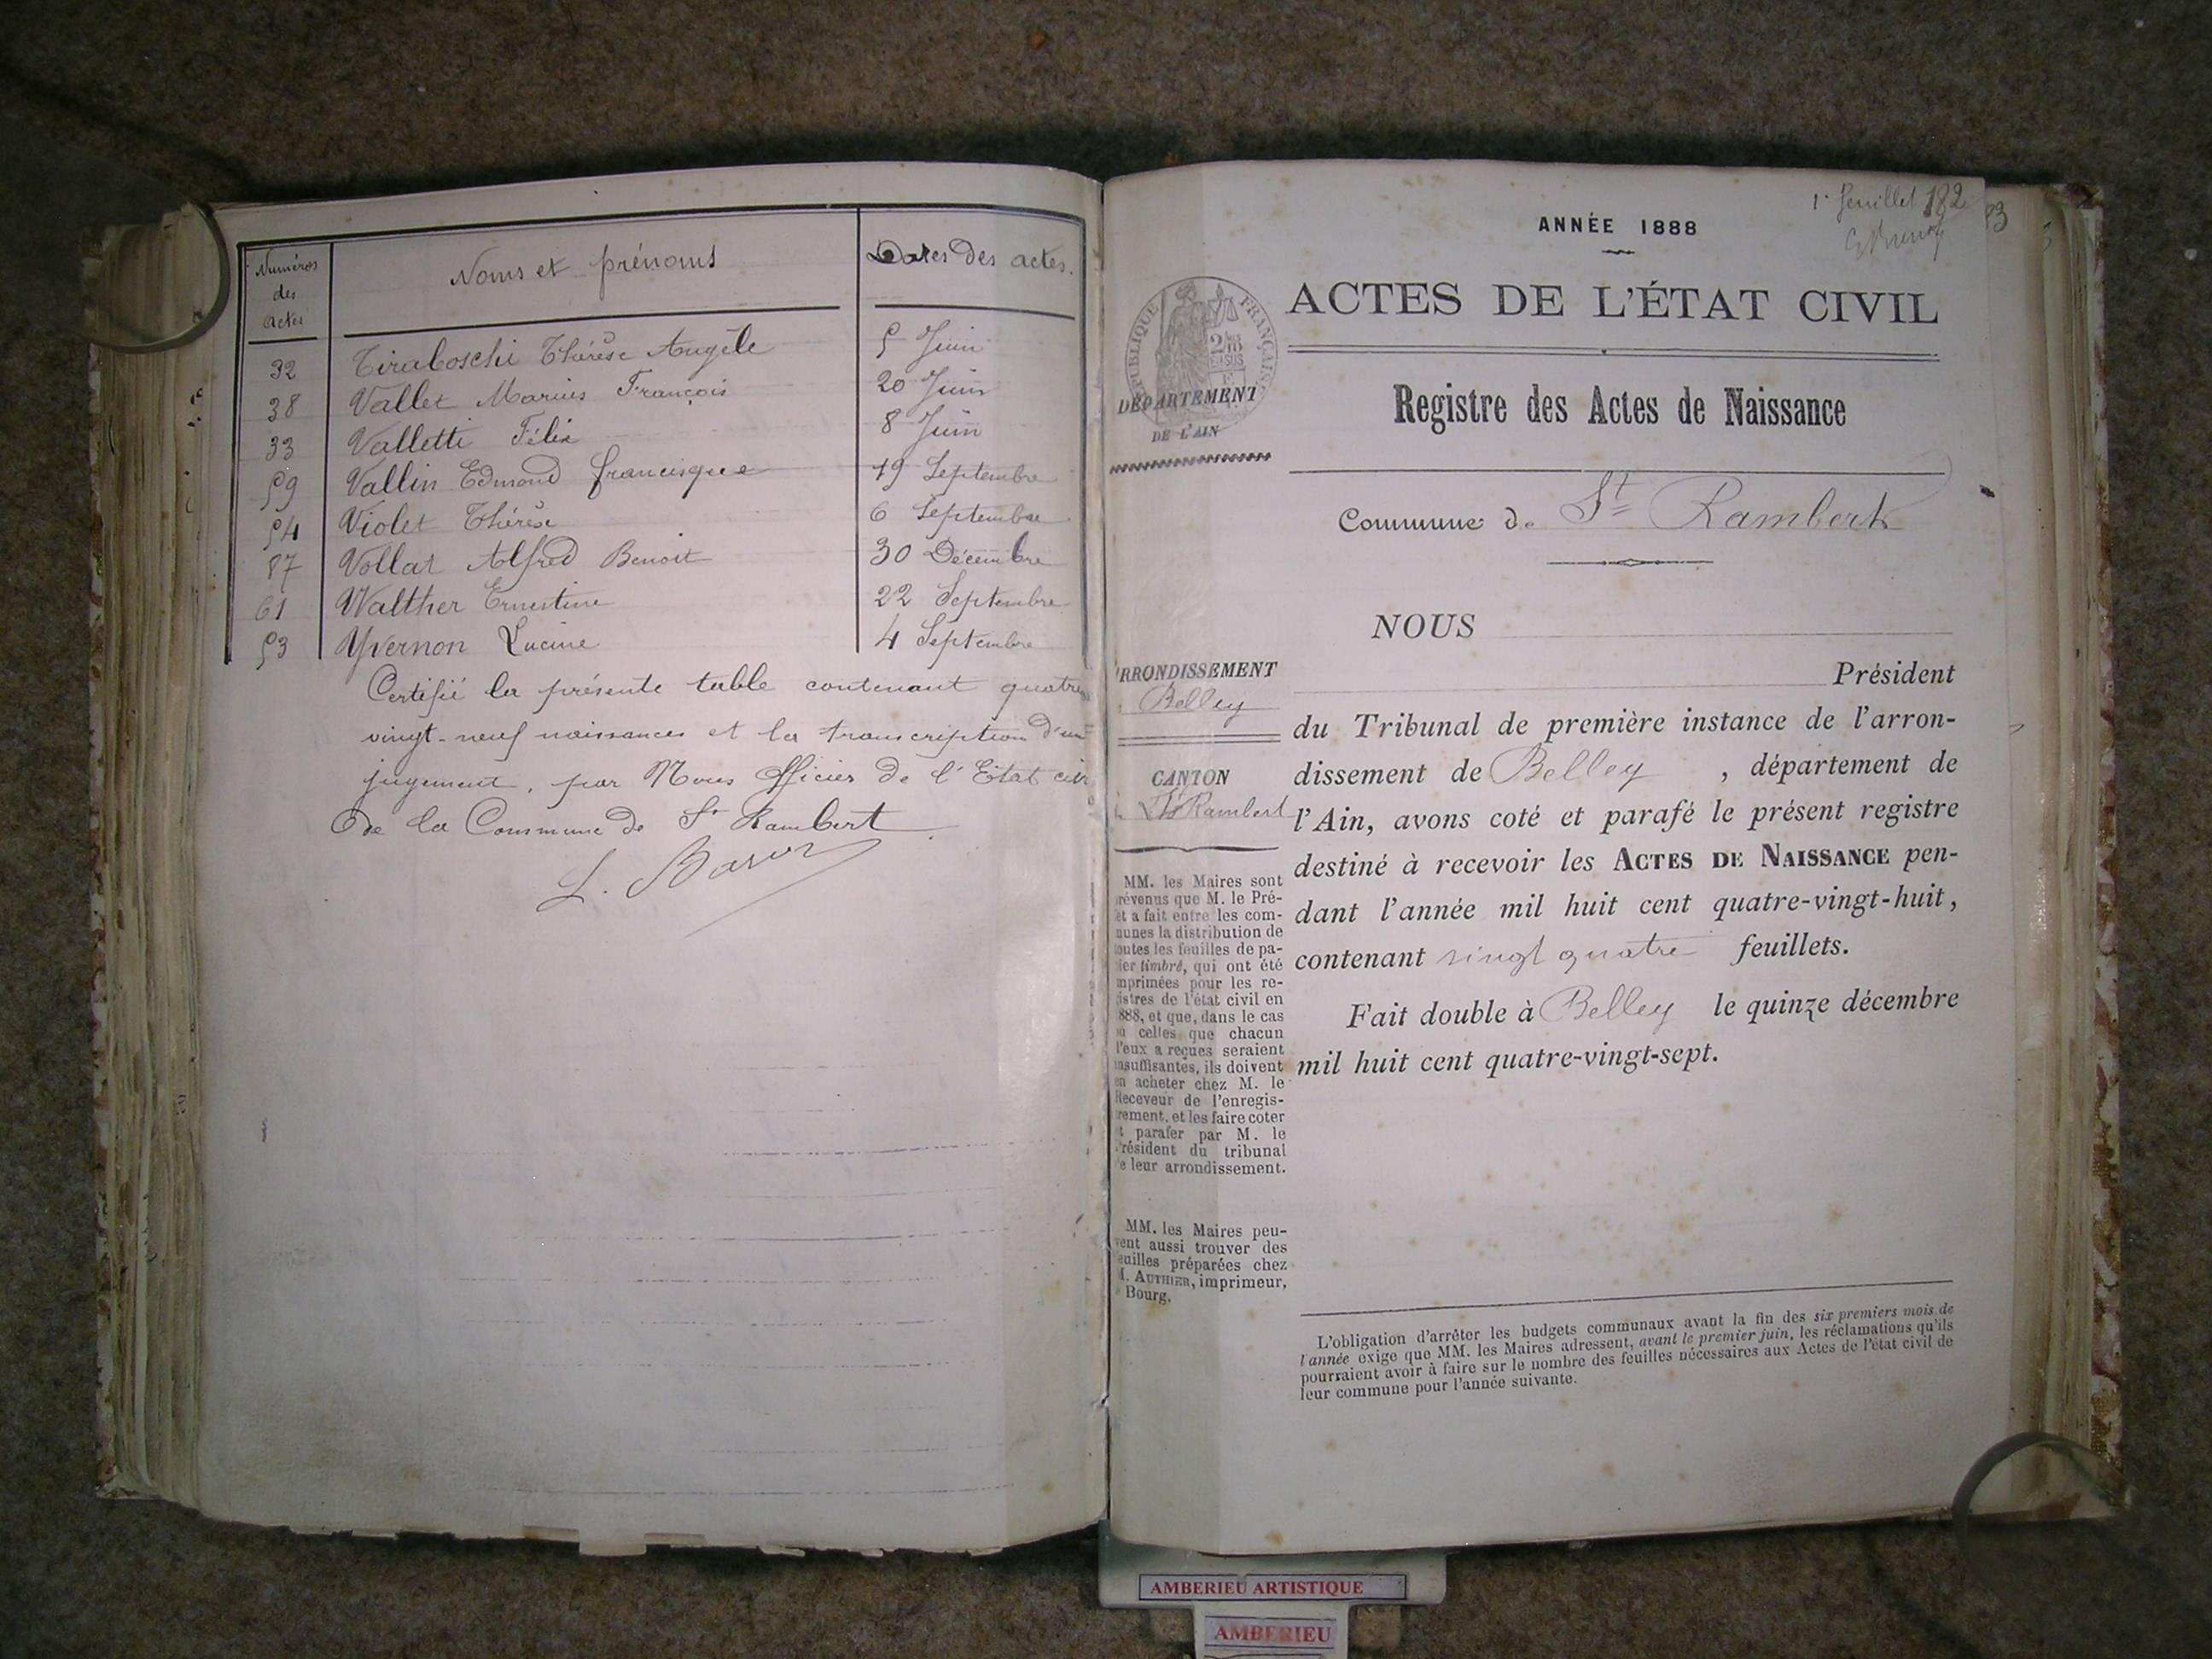 Numéros des Actes
Noms et prénoms
Dates des actes.
32 Tiraboschi Thérèse Angèle 5 Juin
38 Vallet Marius François 20 Juin
33 Valletti Félix 8 Juin
59 Vallin Edmond Francisque 19 Septembre
54 Violet Thérèse 6 Septembre
87 Vollat Alfred Benoit 30 Décembre
61 Walther Ernestine 22 Septembre
53 Yvernon Lucine 4 Septembre
Certifié la présente table contenant quatre
vingt-neuf naissances et la transcription d'un
jugement, par Nous Officier de l'Etat civ
de la Commune de St Rambert.
1er feuillet 182
ANNÉE 1888
ACTES DE L'ÉTAT CIVIL
RÉPUBLIQUE FRANÇAISE
DÉPARTEMENT
DE L'AIN
Registre des Actes de Naissance
Commune de St Rambert
NOUS
Président
du Tribunal de première instance de l'arron-
dissement de Belley, département de
l'Ain, avons coté et parafé le présent registre
destiné à recevoir les ACTES DE NAISSANCE pen-
dant l'année mil huit cent quatre-vingt-huit,
contenant vingt quatre feuillets.
Fait double à Belley le quinze décembre
mil huit cent quatre-vingt-sept.
RRONDISSEMENT
Belley
CANTON
St Rambert
MM. les Maires sont
révenus que M. le Pré-
et a fait entre les com-
nunes la distribution de
outes les feuilles de pa-
ier timbré, qui ont été
mprimées pour les re-
istres de l'état civil en
888, et que, dans le cas
ù celles que chacun
l'eux a reçues seraient
nsuffisantes, ils doivent
en acheter chez M. le
Receveur de l'enregis-
rement, et les faire coter
t parafer par M. le
résident du tribunal
e leur arrondissement.
MM. les Maires peu-
vent aussi trouver des
euilles préparées chez
M. AUTHIER, imprimeur,
Bourg.
L'obligation d'arrêter les budgets communaux avant la fin des six premiers mois de
l'année exige que MM. les Maires adressent, avant le premier juin, les réclamations qu'ils
pourraient avoir à faire sur le nombre des feuilles nécessaires aux Actes de l'état civil de
leur commune pour l'année suivante.
AMBERIEU ARTISTIQUE
AMBERIEU